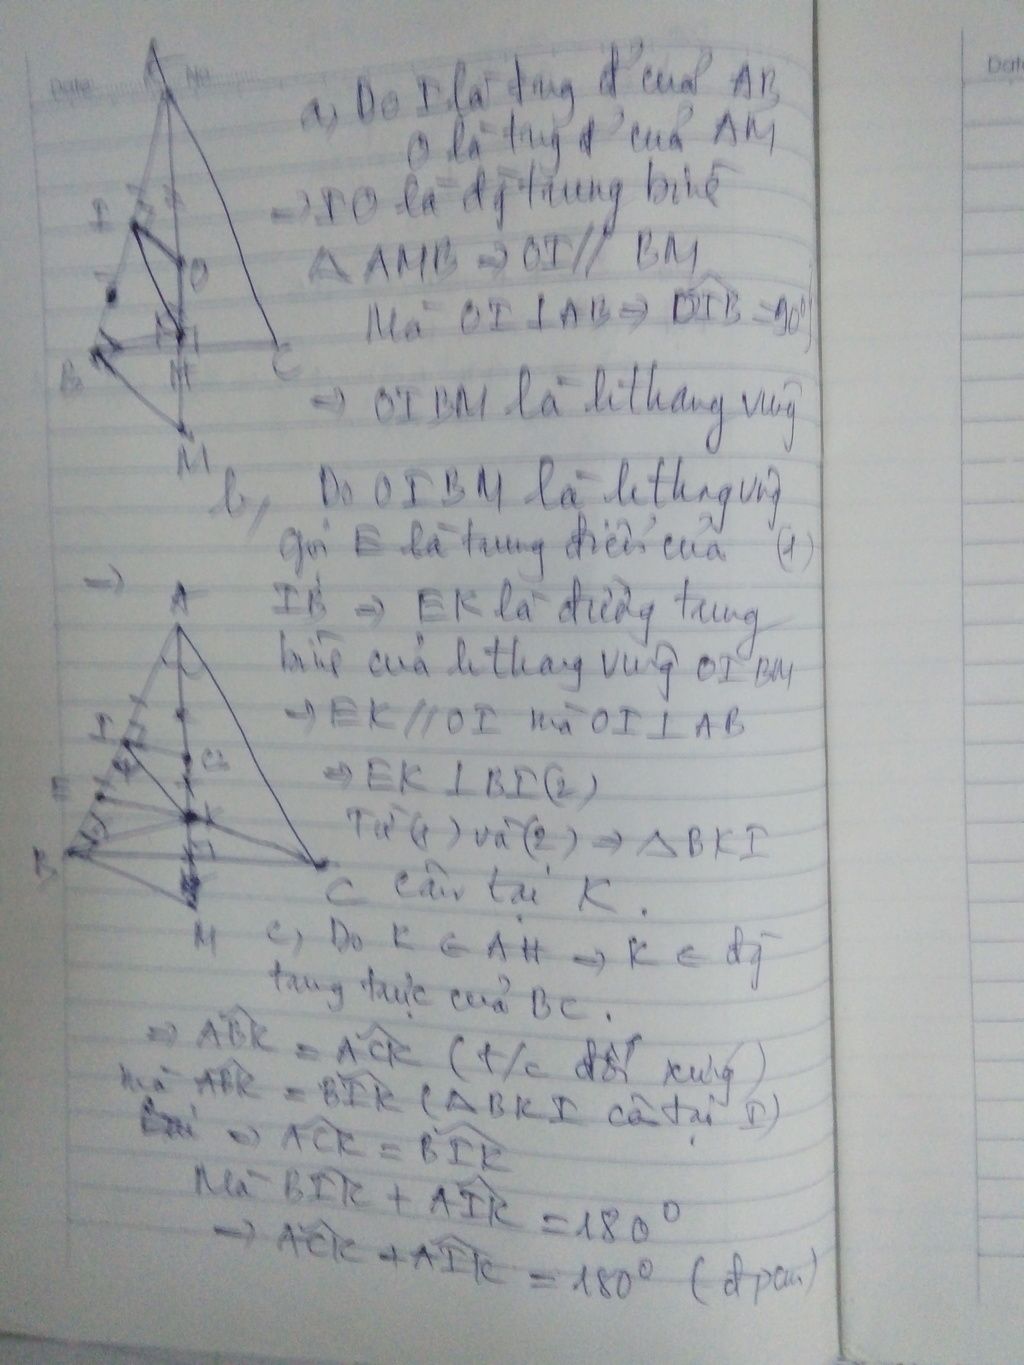 Date
No
Date
A
I
O
B
H
C
M
a, Do I là trug đ' của AB
O là trug đ' của AM
→ IO là đg trung bình
△ AMB → OI // BM
Mà OI ⊥ AB → OIB = 90⁰
→ OIBM là hthang vuôg
b, Do OIBM là hthang vuôg
gọi E là trung điểm của (1)
→
IB → EK là đường trung
bình của hthang vuôg OIBM
→ EK // OI mà OI ⊥ AB
→ EK ⊥ BI (2)
Từ (1) và (2) → △ BKI
cân tại K.
A
I
O
E
K
B
C
M
c, Do K ∈ AH → K ∈ đg
trung trực của BC.
→ ABK = ACK (t/c đối xứng)
mà ABK = BIK (△ BKI cân tại I)
→ ACK = BIK
Mà BIK + AIK = 180⁰
→ ACK + AIK = 180⁰ (đpcm)